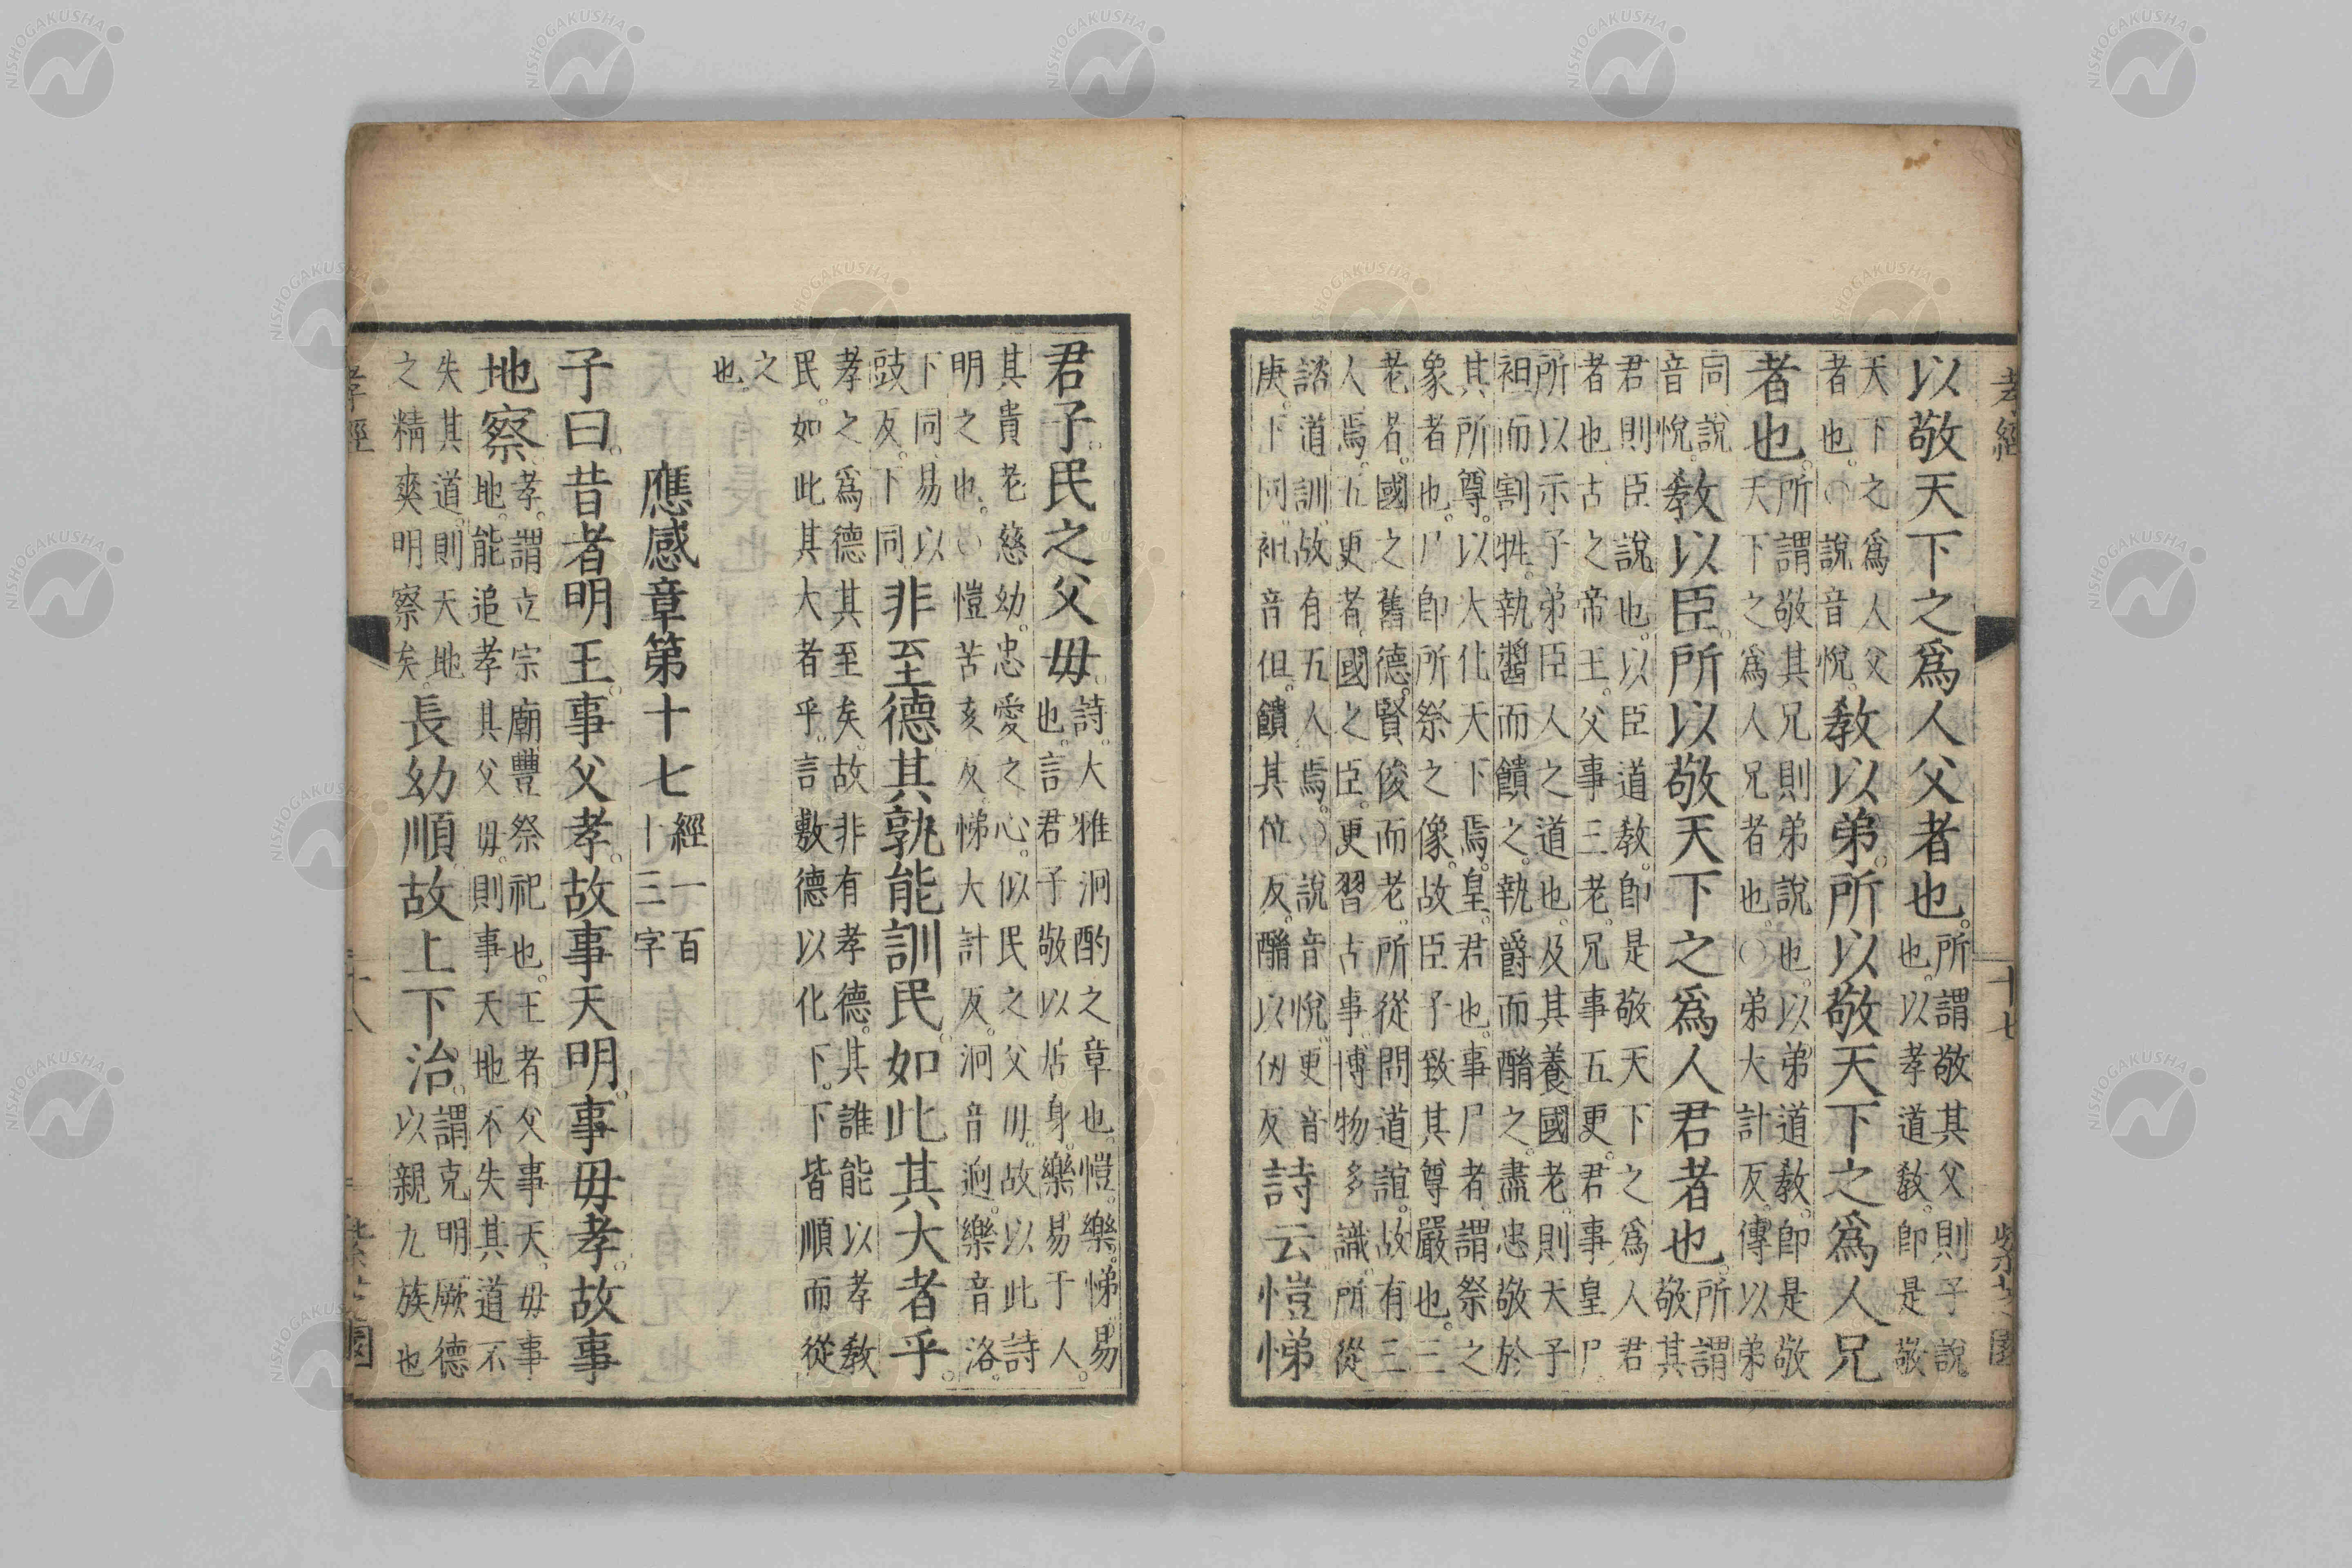 孝經
十七
紫芝園
以敬天下之爲人父者也。所謂敬其父則子說。
也。以孝道敎。卽是敬
天下之爲人父
者也。〇說音悅。敎以弟。所以敬天下之爲人兄
者也。所謂敬其兄則弟說也。以弟道敎。卽是敬
天下之爲人兄者也。〇弟大計反。傳以弟
同。說
音悅。敎以臣。所以敬天下之爲人君者也。所謂
敬其
君則臣說也。以臣道敎。卽是敬天下之爲人君
者也。古之帝王。父事三老。兄事五更。君事皇尸
所以示子弟臣人之道也。及其養國老。則天子
袒而割牲。執醬而饋之。執爵而酳之。盡忠敬於
其所尊。以大化天下焉。皇。君也。事尸者。謂祭之
象者也。尸卽所祭之像。故臣子致其尊嚴也。三
老者。國之舊德。賢俊而老。所從問道誼。故有三
人焉。五更者。國之臣。更習古事。博物多識。所從
諮道訓。故有五人焉。〇說音悅。更音
庚。下同。袒音但。饋其位反。酳以仞反詩云。愷悌
君子。民之父毋。詩。大雅泂酌之章也。愷。樂。悌。易
也。言君子敬以居身。樂易于人。
其貴老慈幼。忠愛之心。似民之父毋。故以此詩
明之也。〇愷苦亥反。悌大計反。泂音迥。樂音洛。
下同。易以
豉反。下同非至德其孰能訓民。如此其大者乎。
孝之爲德其至矣。故非有孝德。其誰能以孝敎
民。如此其大者乎。言敷德以化下。下皆順而從
之
也
應感章第十七經一百
十三字
子曰。昔者明王。事父孝。故事天明。事毋孝。故事
地察。孝。謂立宗廟豐祭祀也。王者父事天。毋事
地。能追孝其父毋。則事天地不失其道。不
失其道。則天地
之精爽明察矣。長幼順。故上下治。謂克明厥德
以親九族也
孝經
十八
紫芝園